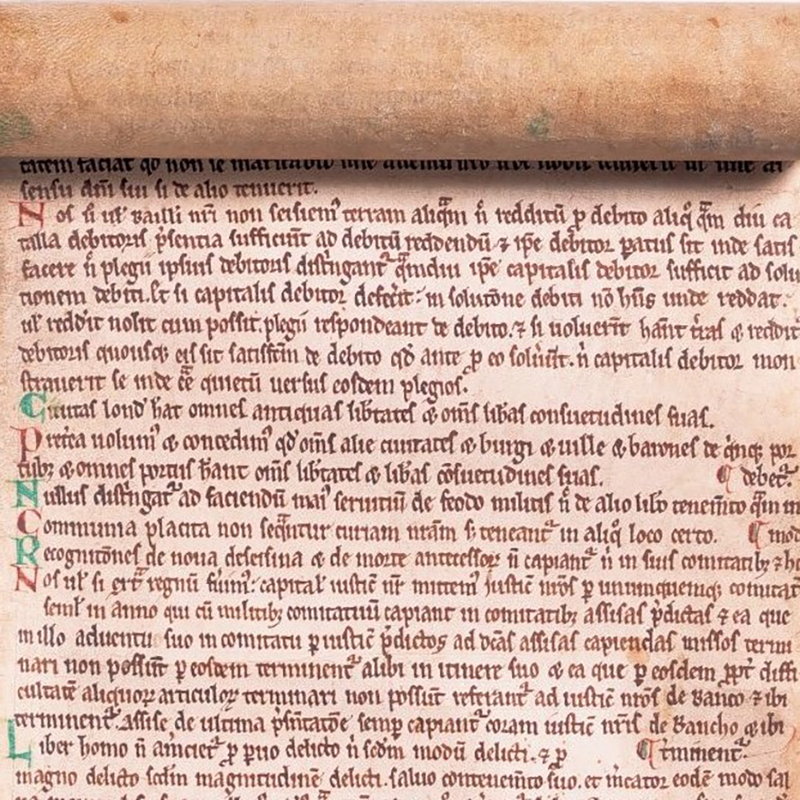 tatem faciat qd non se maritabit sine
sensu dñi sui si de alio tenuerit.
Nos ũ ul' Bailli nr̃i non seisiem' terram aliq̃m ñ redditũ ꝑ debito aliq̊ q̃m diu ca
talla debitoris p̃sentia sufficiũt ad debitũ reddendũ ⁊ ip̃e debitor paratus sit inde satis
facere ñ plegii ipsius debitoris distringant᷑ q̃mdiu ip̃e capitalis debitor sufficit ad solu
tionem debiti. Et si capitalis debitor defec̃it in solutõne debiti nõ hñs unde reddat.
ul' reddĩt nolit cum possit. plegii respondeant de debito. ⁊ si uoluerĩt hãnt t̃ras & reddit
debitoris quousq; eis sit satisfc̃m de debito qd̃ ante ꝑ eo soluĩt. ñ capitalis debitor mon
strauerit se inde ẽẽ quietũ uersus eosdem plegios.
Ciuitas lond' h̃at omnes antiquas lib̃tates & om̃s lib̃as consuetudines suas.
Pret̃ea uolum' & concedim' qd̃ om̃s alie ciuitates & burgi & uille & barones de q̃nq; por
tub; & omnes portus h̃ant om̃s lib̃tates & lib̃as cõsuetudines suas. ¶ debet᷑.
Nullus distringat᷑ ad faciendũ mai' seruitiũ de feodo militis ñ de alio lib̃o tenem̃to q̃m in
Communia placita non seq̃ntur curiam nr̃am s; teneant᷑ in aliq̊ loco certo. ¶ mod
Recognitõnes de noua desseisina & de morte antecessor̃ ñ capiant᷑ ñ in suis comitatib; ⁊ ho
Nos ul' si ext̃ regnũ fũim' capital' iustic̃ nr̃ mittem' Justic̃ nr̃os ꝑ unumquemq; comitat̃
semel in anno qui cũ militib; comitatuũ capiant in comitatib; assisas p̃dictas ⁊ ea que
in illo aduentu suo in comitatu ꝑ iustic̃ p̃dictos ad dc̃as assisas capiendas missos termi
nari non possũt ꝑ eosdem terminent᷑ alibi in itinere suo & ea que ꝑ eosdem ꝓpt̃ diffi
cultatẽ aliquoꝝ articuloꝝ terminari non possũt referant᷑ ad iustic̃ nr̃os de banco ⁊ ibi
terminent᷑. Assise de ultima p̃sentatõe semꝑ capiant᷑ coram iustic̃ nr̃is de Bancho & ibi
Liber homo ñ am̃ciet᷑ ꝑ paruo delicto ñ sc̃dm modũ delicti. ⁊ ꝑ ¶ t̃minent᷑.
magno delicto sc̃dm magnitudinẽ delicti. saluo contenem̃to suo. et m̃cator eodẽ modo sal